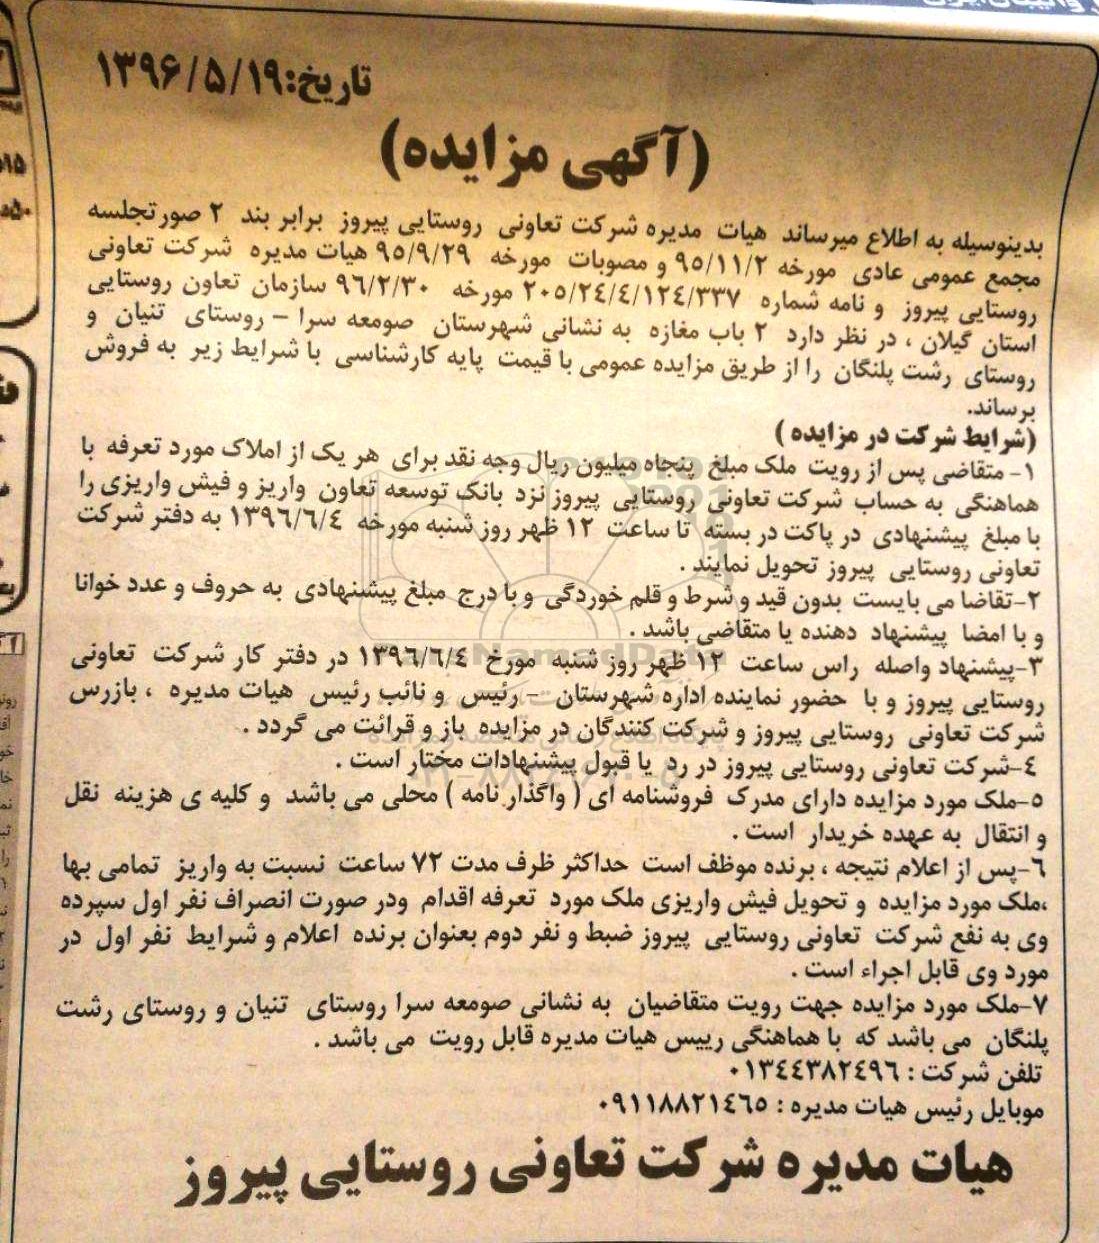 تاریخ:۱۳۹۶/۵/۱۹
(آگهی مزایده)
بدینوسیله به اطلاع میرساند هیات مدیره شرکت تعاونی روستایی پیروز برابر بند ۲ صورتجلسه
مجمع عمومی عادی مورخه ۹۵/۱۱/۲ و مصوبات مورخه ۹۵/۹/۲۹ هیات مدیره شرکت تعاونی
روستایی پیروز و نامه شماره ۲۰۵/۲٤/٤/۱۲٤/۳۳۷ مورخه ۹٦/۲/۳۰ سازمان تعاون روستایی
استان گیلان ، در نظر دارد ۲ باب مغازه به نشانی شهرستان صومعه سرا – روستای تنیان و
روستای رشت پلنگان را از طریق مزایده عمومی با قیمت پایه کارشناسی با شرایط زیر به فروش
برساند.
(شرایط شرکت در مزایده )
۱- متقاضی پس از رویت ملک مبلغ پنجاه میلیون ریال وجه نقد برای هر یک از املاک مورد تعرفه با
هماهنگی به حساب شرکت تعاونی روستایی پیروز نزد بانک توسعه تعاون واریز و فیش واریزی را
با مبلغ پیشنهادی در پاکت در بسته تا ساعت ۱۲ ظهر روز شنبه مورخه ۱۳۹٦/٦/٤ به دفتر شرکت
تعاونی روستایی پیروز تحویل نمایند .
۲-تقاضا می بایست بدون قید و شرط و قلم خوردگی و با درج مبلغ پیشنهادی به حروف و عدد خوانا
و با امضا پیشنهاد دهنده یا متقاضی باشد .
۳-پیشنهاد واصله راس ساعت ۱۲ ظهر روز شنبه مورخ ۱۳۹٦/٦/٤ در دفتر کار شرکت تعاونی
روستایی پیروز و با حضور نماینده اداره شهرستان – رئیس و نائب رئیس هیات مدیره ، بازرس
شرکت تعاونی روستایی پیروز و شرکت کنندگان در مزایده باز و قرائت می گردد .
٤-شرکت تعاونی روستایی پیروز در رد یا قبول پیشنهادات مختار است .
۵-ملک مورد مزایده دارای مدرک فروشنامه ای ( واگذار نامه ) محلی می باشد و کلیه ی هزینه نقل
و انتقال به عهده خریدار است .
٦-پس از اعلام نتیجه ، برنده موظف است حداکثر ظرف مدت ۷۲ ساعت نسبت به واریز تمامی بها
،ملک مورد مزایده و تحویل فیش واریزی ملک مورد تعرفه اقدام ودر صورت انصراف نفر اول سپرده
وی به نفع شرکت تعاونی روستایی پیروز ضبط و نفر دوم بعنوان برنده اعلام و شرایط نفر اول در
مورد وی قابل اجراء است .
۷-ملک مورد مزایده جهت رویت متقاضیان به نشانی صومعه سرا روستای تنیان و روستای رشت
پلنگان می باشد که با هماهنگی رییس هیات مدیره قابل رویت می باشد .
تلفن شرکت : ۰۱۳٤٤۳۸۲٤۹٦
موبایل رئیس هیات مدیره : ۰۹۱۱۸۸۲۱٤٦۵
هیات مدیره شرکت تعاونی روستایی پیروز